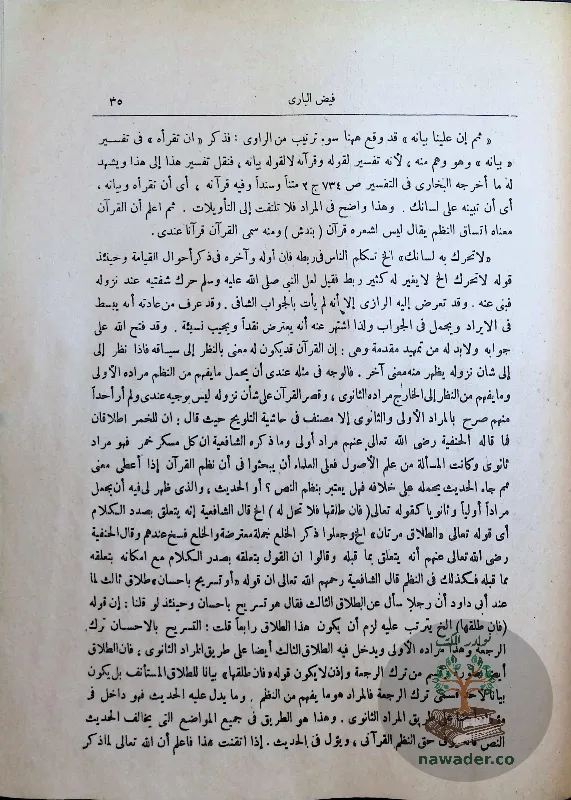 فيض البارى ٣٥
« ثم إن علينا بيانه » قد وقع ههنا سوء ترتيب من الراوى : فذكر « ان تقرأه » فى تفسير
« بيانه » وهو وهم منه ، لأنه تفسير لقوله وقرآنه لا لقوله بيانه ، فنقل تفسير هذا إلى هذا ويشهد
له ما أخرجه البخارى فى التفسير ص ٧٣٤ ج ٢ متناً وسنداً وفيه قرآنه ، أى أن تقرأه وبيانه ،
أى أن تبينه على لسانك . وهذا واضح فى المراد فلا تلتفت إلى التأويلات . ثم اعلم أن القرآن
معناه اتساق النظم يقال ليس لشعره قرآن ( بندش ) ومنه سمى القرآن قرآنا عندى .
« لاتحرك به لسانك » الخ تسكلم الناس فى ربطه فان أوله وآخره فى ذكر أحوال القيامة وحينئذ
قوله لاتحرك الخ لا يظهر له كثير ربط فقيل لعل النبى صلى الله عليه وسلم حرك شفتيه عند نزوله
فنهى عنه . وقد تعرض إليه الرازى إلا أنه لم يأت بالجواب الشافى . وقد عرف من عادته أنه يبسط
فى الايراد ويجمل فى الجواب ولذا اشتهر عنه أنه يعترض نقداً ويجيب نسيئة . وقد فتح الله على
جوابه ولابد له من تمهيد مقدمة وهى : إن القرآن قد يكون له معنى بالنظر إلى سياقه فاذا نظر إلى
إلى شأن نزوله يظهر منه معنى آخر . فالوجه فى مثله عندى أن يحمل ما يفهم من النظم مراده الأولى
وما يفهم من النظر إلى الخارج مراده الثانوى ، وقصر القرآن على شأن نزوله ليس بوجيه عندى ولم أر أحداً
منهم صرح بالمراد الأولى والثانوى إلا مصنف فى حاشية التلويح حيث قال : ان للخمر اطلاقان
فما قاله الحنفية رضى الله تعالى عنهم مراد أولى وما ذكره الشافعية ان كل مسكر خمر فهو مراد
ثانوى وكانت المسألة من علم الأصول فعلى العلماء أن يبحثوا فى أن نظم القرآن إذا أعطى معنى
ثم جاء الحديث يحمله على خلافه فهل يعتبر بنظم النص ؟ أو الحديث ، والذى ظهر لى فيه أن يجعل
مراداً أولياً وثانويا كقوله تعالى ( فان طلقها فلا تحل له ) الخ قال الشافعية إنه يتعلق بصدر الكلام
أى قوله تعالى « الطلاق مرتان » الخ وجعلوا ذكر الخلع جملة معترضة والخلع فسخ عندهم وقال الحنفية
رضى الله تعالى عنهم أنه يتعلق بما قبله وقالوا ان القول بتعلقه بصدر الكلام مع امكانه بتعلقه
بما قبله فكذلك فى النظم قال الشافعية رحمهم الله تعالى ان قوله « أو تسريح باحسان » طلاق ثالث لما
عند أبى داود أن رجلا سأل عن الطلاق الثالث فقال هو تسريح باحسان وحينئذ لو قلنا : إن قوله
( فان طلقها ) الخ يترتب عليه لزم أن يكون هذا الطلاق رابعاً قلت : التسريح بالاحسان ترك
الرجعة وهذا مراده الأولى ويدخل فيه الطلاق الثالث أيضا على طريق المراد الثانوى ، فان الطلاق
من ترك الرجعة وإذن لا يكون قوله « فان طلقها » بيانا للطلاق المستأنف بل يكون
بيانا ترك الرجعة فالمراد هو ما يفهم من النظم . وما يدل عليه الحديث فهو داخل فى
طريق المراد الثانوى . وهذا هو الطريق فى جميع المواضع التى يخالف الحديث
النص حق النظم القرآنى ، ويؤل فى الحديث . إذا اتقنت هذا فاعلم أن الله تعالى لما ذكر
نوادر الكتب
nawader.co